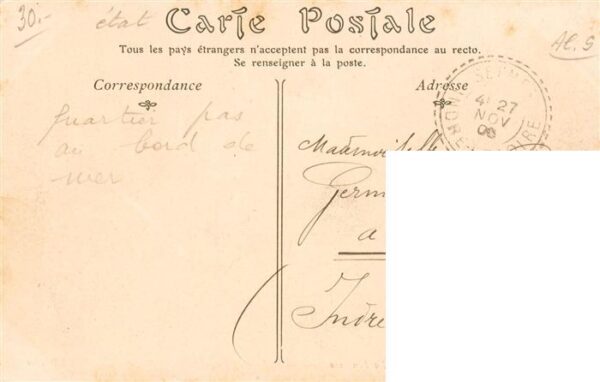 30.-
état
Al. S
Carte Postale
Tous les pays étrangers n'acceptent pas la correspondance au recto.
Se renseigner à la poste.
Correspondance
Adresse
27
NOV
quartier pas
au bord de
mer
Mademoiselle
Germ
a
Indre